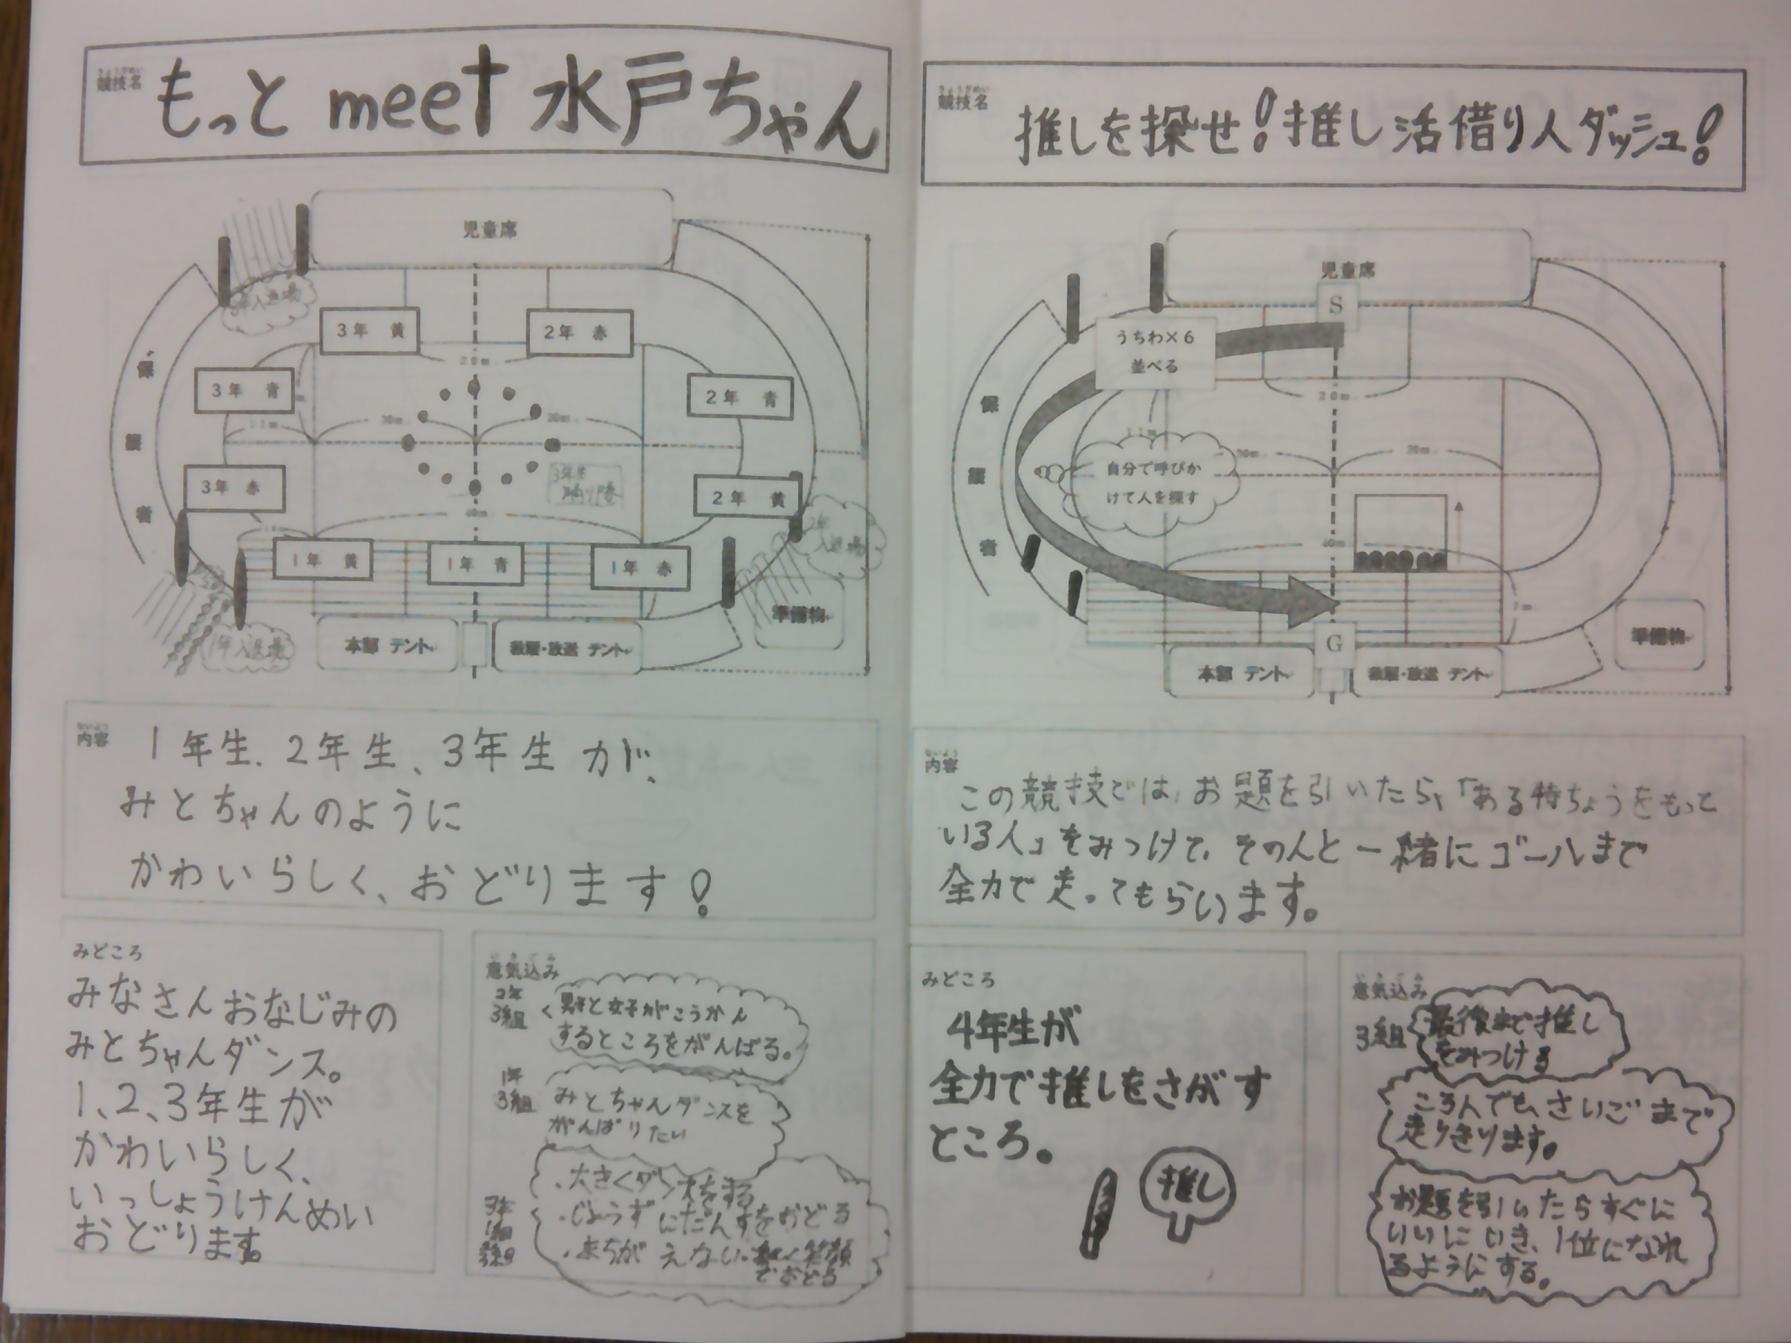 競技名
もっと meet 水戸ちゃん
児童席
3年入退場
3年 黄
2年 赤
20m
3年 青
2年 青
保護者
11m
20m
20m
3年 赤
2年 黄
3年生
40m
入退場
1年 黄
1年 青
1年 赤
準備物
1年入退場
本部 テント
救護・放送 テント
内容
1年生、2年生、3年生が、
みとちゃんのように
かわいらしく、おどります!
みどころ
みなさんおなじみの
みとちゃんダンス。
1、2、3年生が
かわいらしく、
いっしょうけんめい
おどります。
意気込み
2年
3組
男子と女子がこうかん
するところをがんばる。
1年
3組
みとちゃんダンスを
がんばりたい
3年
・大きくダンスをする
・じょうずにだんすをおどる
・まちがえない
笑顔
でおどる
競技名
推しを探せ!推し活借り人ダッシュ!
児童席
S
うちわ×6
並べる
20m
保護者
11m
20m
20m
自分で呼びか
けて人を探す
40m
7m
準備物
G
本部 テント
救護・放送 テント
内容
この競技では、お題を引いたら、「ある特ちょうをもって
いる人」をみつけて、その人と一緒にゴールまで
全力で走ってもらいます。
みどころ
4年生が
全力で推しをさがす
ところ。
推し
意気込み
3組
最後まで推し
をみつける
ころんでも、さいごまで
走りきります。
お題を引いたらすぐに
いいにいき、1位になれ
るようにする。